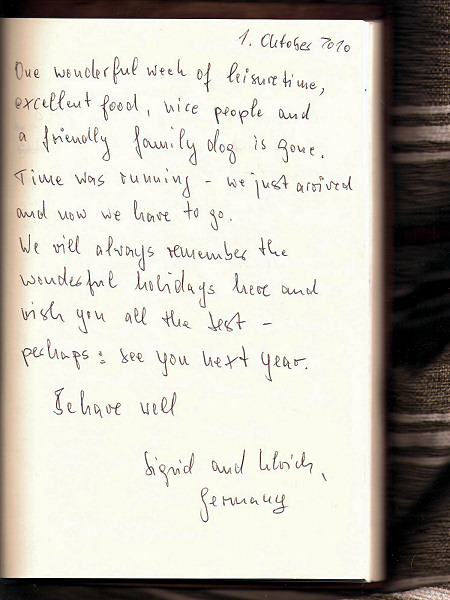 1. Oktober 2010
One wonderful week of leisuretime,
excellent food, nice people and
a friendly family dog is gone.
Time was running - we just arrived
and now we have to go.
We will always remember the
wonderful holidays here and
wish you all the best -
perhaps: see you next year.
Behave well
Sigrid and Ulrich,
Germany